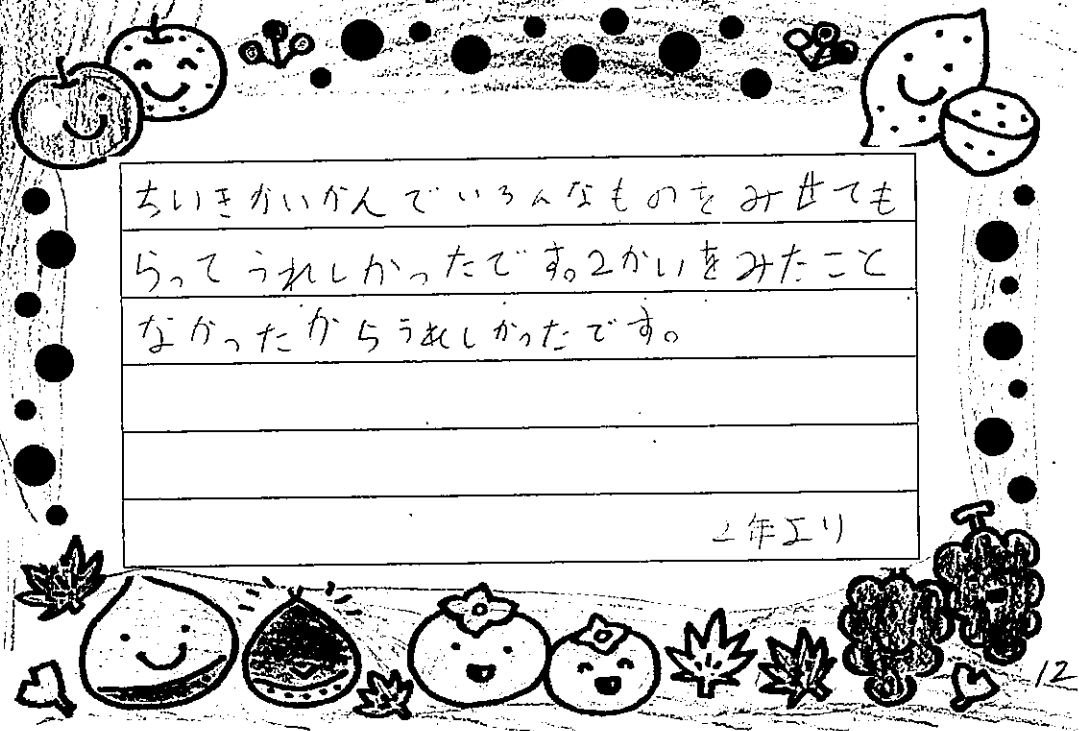 ちいきかいかんでいろんなものをみせても
らってうれしかったです。2かいをみたこと
なかったからうれしかったです。
2年より
12